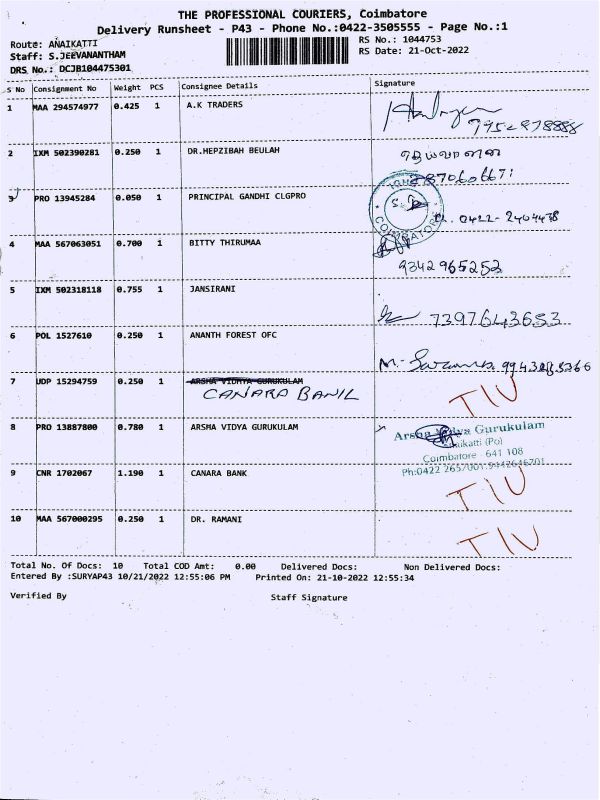 THE PROFESSIONAL COURIERS, Coimbatore
Delivery Runsheet - P43 - Phone No.:0422-3505555 - Page No.:1
Route: ANAIKATTI
RS No.: 1044753
Staff: S.JEEVANANTHAM
RS Date: 21-Oct-2022
DRS No.: DCJB104475301
S No Consignment No Weight PCS Consignee Details Signature
1 MAA 294574977 0.425 1 A.K TRADERS
7952978888
2 IXM 502390281 0.250 1 DR.HEPZIBAH BEULAH
3 PRO 13945284 0.050 1 PRINCIPAL GANDHI CLGPRO
0422-2404438
4 MAA 567063051 0.700 1 BITTY THIRUMAA
9342965253
5 IXM 502318118 0.755 1 JANSIRANI
7397643653
6 POL 1527610 0.250 1 ANANTH FOREST OFC
7 UDP 15294759 0.250 1 ARSHA VIDHYA GURUKULAM
CANARA BANK
TIV
8 PRO 13887800 0.780 1 ARSHA VIDYA GURUKULAM
Arsha Vidya Gurukulam
(Po)
Coimbatore - 641 108
9 CNR 1702067 1.190 1 CANARA BANK
TIV
10 MAA 567000295 0.250 1 DR. RAMANI
TIV
Total No. Of Docs: 10 Total COD Amt: 0.00 Delivered Docs: Non Delivered Docs:
Entered By :SURYAP43 10/21/2022 12:55:06 PM Printed On: 21-10-2022 12:55:34
Verified By Staff Signature